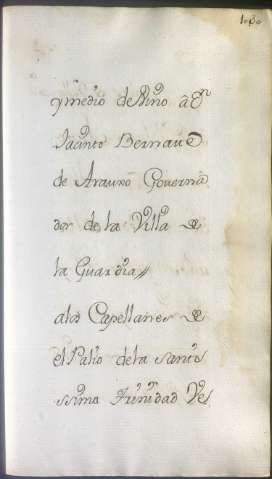 y medio de Vino a Dn
Jacinto Bernave
de Arauxo Governa
dor de la Villa de
la Guardia//
a los Capellanes de
el Palio de la Santi
ssima Trinidad Ve